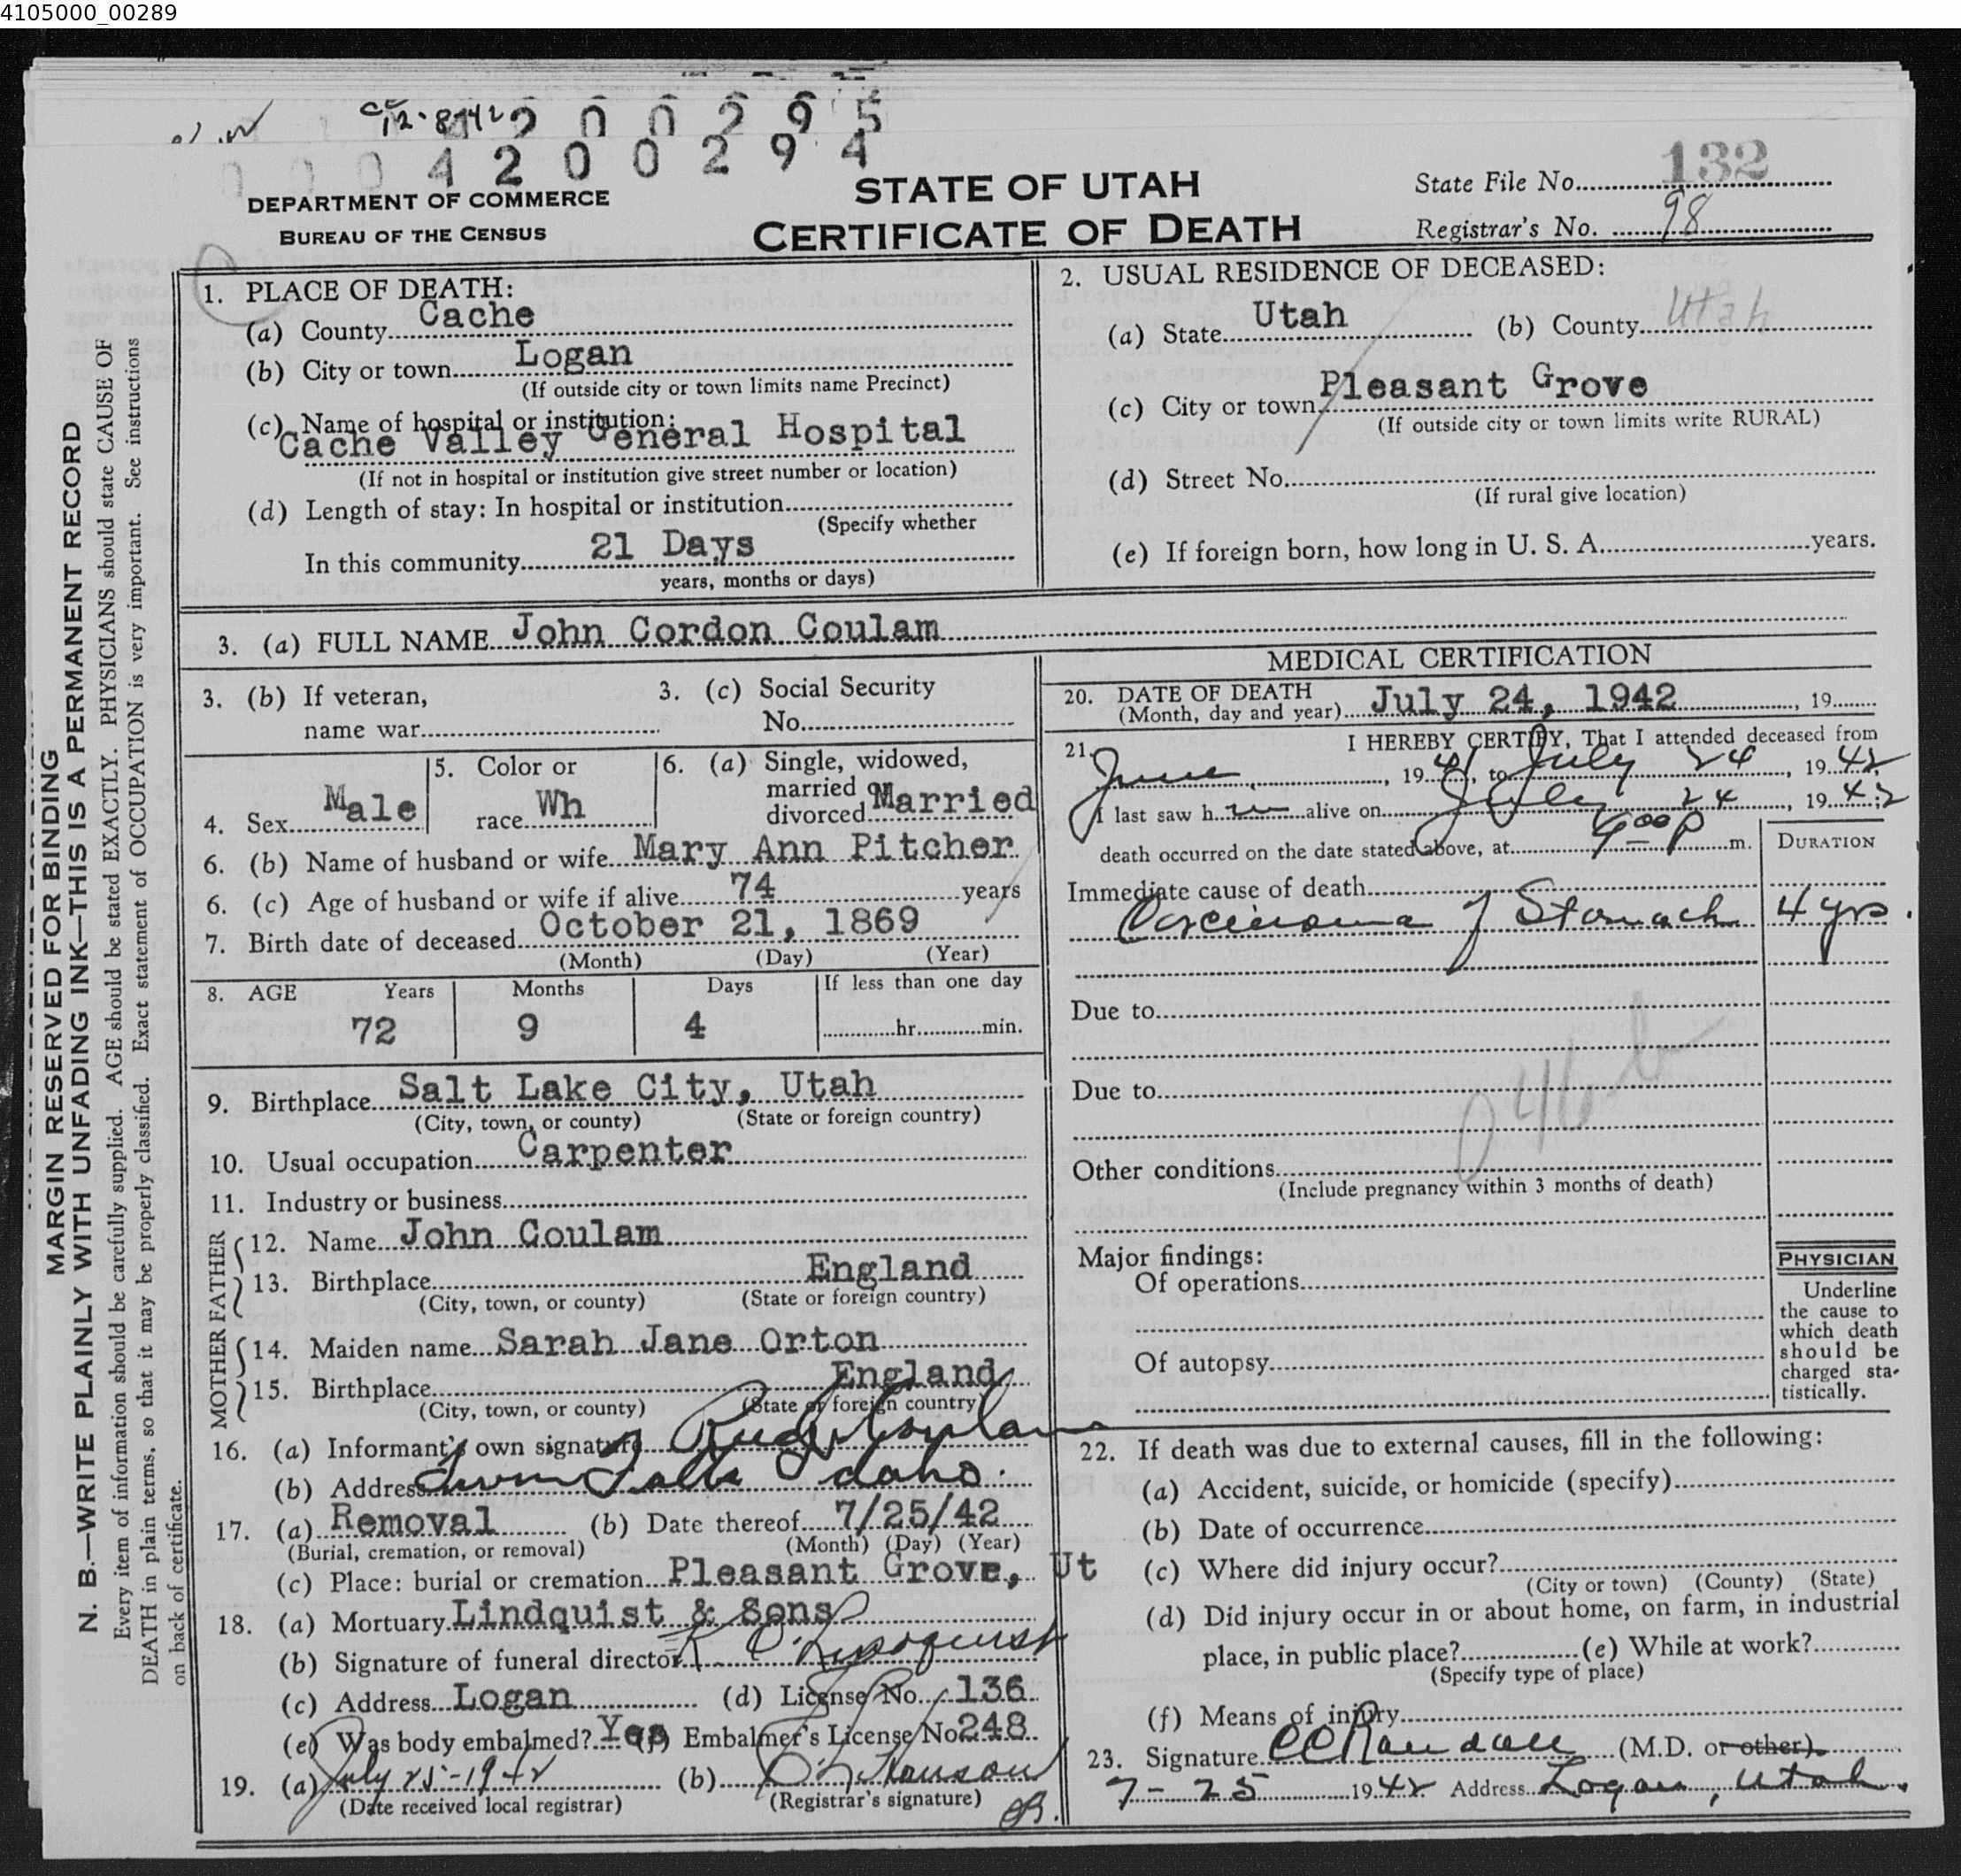 4105000_00289
12-8742 2 0 0 2 9 5
0 0 0 4 2 0 0 2 9 4
DEPARTMENT OF COMMERCE
BUREAU OF THE CENSUS
STATE OF UTAH
CERTIFICATE OF DEATH
State File No. 132
Registrar's No. 98
MARGIN RESERVED FOR BINDING
N. B.—WRITE PLAINLY WITH UNFADING INK—THIS IS A PERMANENT RECORD
Every item of information should be carefully supplied. AGE should be stated EXACTLY. PHYSICIANS should state CAUSE OF
DEATH in plain terms, so that it may be properly classified. Exact statement of OCCUPATION is very important. See instructions
on back of certificate.
1. PLACE OF DEATH:
(a) County Cache
(b) City or town Logan
(If outside city or town limits name Precinct)
(c) Name of hospital or institution:
Cache Valley General Hospital
(If not in hospital or institution give street number or location)
(d) Length of stay: In hospital or institution
(Specify whether
In this community 21 Days
years, months or days)
2. USUAL RESIDENCE OF DECEASED:
(a) State Utah (b) County Utah
(c) City or town Pleasant Grove
(If outside city or town limits write RURAL)
(d) Street No.
(If rural give location)
(e) If foreign born, how long in U. S. A. years.
3. (a) FULL NAME John Cordon Coulam
3. (b) If veteran, name war
3. (c) Social Security No.
4. Sex Male
5. Color or race Wh
6. (a) Single, widowed, married or divorced Married
6. (b) Name of husband or wife Mary Ann Pitcher
6. (c) Age of husband or wife if alive 74 years
7. Birth date of deceased October 21, 1869
(Month) (Day) (Year)
8. AGE Years Months Days If less than one day
72 9 4 hr. min.
9. Birthplace Salt Lake City, Utah
(City, town, or county) (State or foreign country)
10. Usual occupation Carpenter
11. Industry or business
FATHER
12. Name John Coulam
13. Birthplace England
(City, town, or county) (State or foreign country)
MOTHER
14. Maiden name Sarah Jane Orton
15. Birthplace England
(City, town, or county) (State or foreign country)
16. (a) Informant's own signature Coulam
(b) Address Twin Falls Idaho.
17. (a) Removal (b) Date thereof 7/25/42
(Burial, cremation, or removal) (Month) (Day) (Year)
(c) Place: burial or cremation Pleasant Grove, Ut
18. (a) Mortuary Lindquist & Sons
(b) Signature of funeral director Lindquist
(c) Address Logan (d) License No. 136
(e) Was body embalmed? Yes (f) Embalmer's License No 248
19. (a) July 25-1942 (b)
(Date received local registrar) (Registrar's signature)
MEDICAL CERTIFICATION
20. DATE OF DEATH
(Month, day and year) July 24, 1942, 19
21. I HEREBY CERTIFY, That I attended deceased from
June, 1941, to July 24, 1942
I last saw him alive on July 24, 1942
death occurred on the date stated above, at 4:00 P m.
DURATION
Immediate cause of death
Carcinoma of Stomach 4 yrs.
Due to
Due to
046 b
Other conditions
(Include pregnancy within 3 months of death)
Major findings:
Of operations
Of autopsy
PHYSICIAN
Underline
the cause to
which death
should be
charged sta-
tistically.
22. If death was due to external causes, fill in the following:
(a) Accident, suicide, or homicide (specify)
(b) Date of occurrence
(c) Where did injury occur?
(City or town) (County) (State)
(d) Did injury occur in or about home, on farm, in industrial
place, in public place? (e) While at work?
(Specify type of place)
(f) Means of injury
23. Signature CC Randall (M.D. or other)
7-25 1942 Address Logan, Utah.